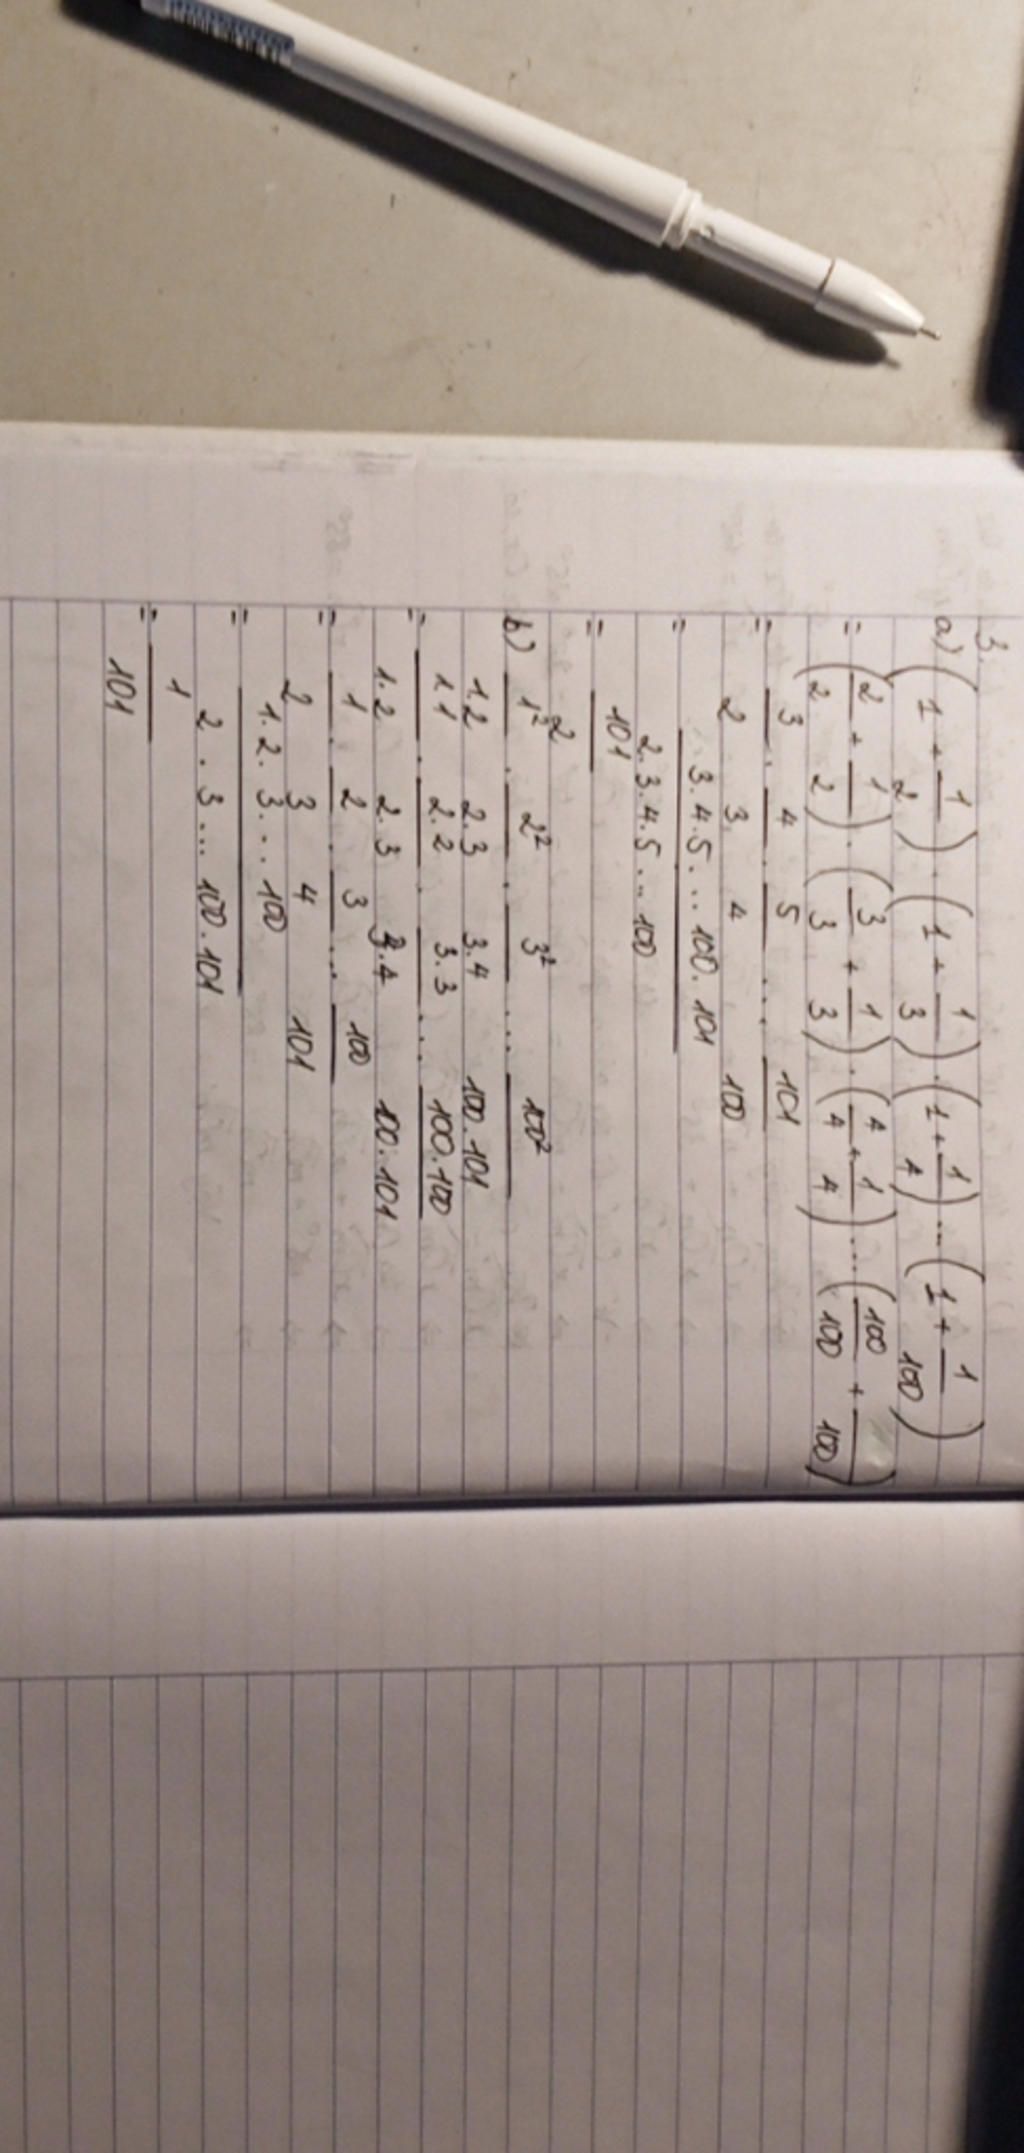 3.
a) (1 + 1/2) . (1 + 1/3) . (1 + 1/4) ... (1 + 1/100)
= (2/2 + 1/2) . (3/3 + 1/3) . (4/4 + 1/4) ... (100/100 + /100)
= 3/2 . 4/3 . 5/4 ... 101/100
= 3.4.5...100.101 / 2.3.4.5...100
= 101/2
b) 1²/1.2 . 2²/2.3 . 3²/3.4 ... 100²/100.101
= 1.1/1.2 . 2.2/2.3 . 3.3/3.4 ... 100.100/100.101
= 1/2 . 2/3 . 3/4 ... 100/101
= 1.2.3...100 / 2.3...100.101
= 1/101